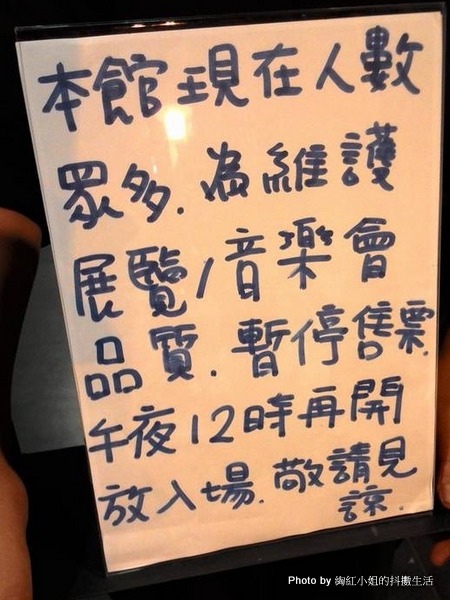 本館現在人數
眾多.為維護
展覽/音樂會
品質.暫停售票.
午夜12時再開
放入場.敬請見
諒.
Photo by 絢紅小姐的抖擻生活